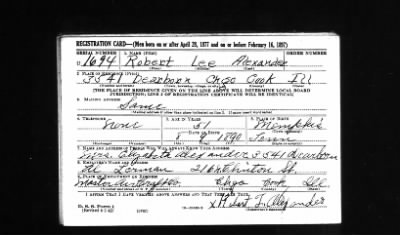 REGISTRATION CARD—(Men born on or after April 28, 1877 and on or before February 16, 1897)
SERIAL NUMBER 1. NAME (Print) ORDER NUMBER
U 1694 Robert Lee Alexander
(First) (Middle) (Last)
2. PLACE OF RESIDENCE (Print)
3341 Dearborn Chgo Cook Ill
[THE PLACE OF RESIDENCE GIVEN ON THE LINE ABOVE WILL DETERMINE LOCAL BOARD
JURISDICTION; LINE 2 OF REGISTRATION CERTIFICATE WILL BE IDENTICAL]
3. MAILING ADDRESS
Same
4. TELEPHONE 5. AGE IN YEARS 6. PLACE OF BIRTH
none 51 Memphis
DATE OF BIRTH
8 9 1890 Tenn
7. NAME AND ADDRESS OF PERSON WHO WILL ALWAYS KNOW YOUR ADDRESS
Mrs. Elizabeth Alexander 3341 Dearborn
8. EMPLOYER'S NAME AND ADDRESS
216 N. Clinton St.
Chgo Cook Ill
I AFFIRM THAT I HAVE VERIFIED ABOVE ANSWERS AND THAT THEY ARE TRUE.
D. S. S. Form 1
x Robert L. Alexander